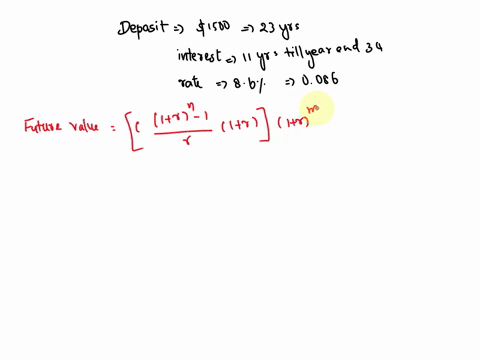 Deposit => $1500 => 23 yrs
interest => 11 yrs till year end 34
rate => 8.6% => 0.086
Future value = [( \frac{(1+r)^n - 1}{r} (1+r) ] (1+r)^m